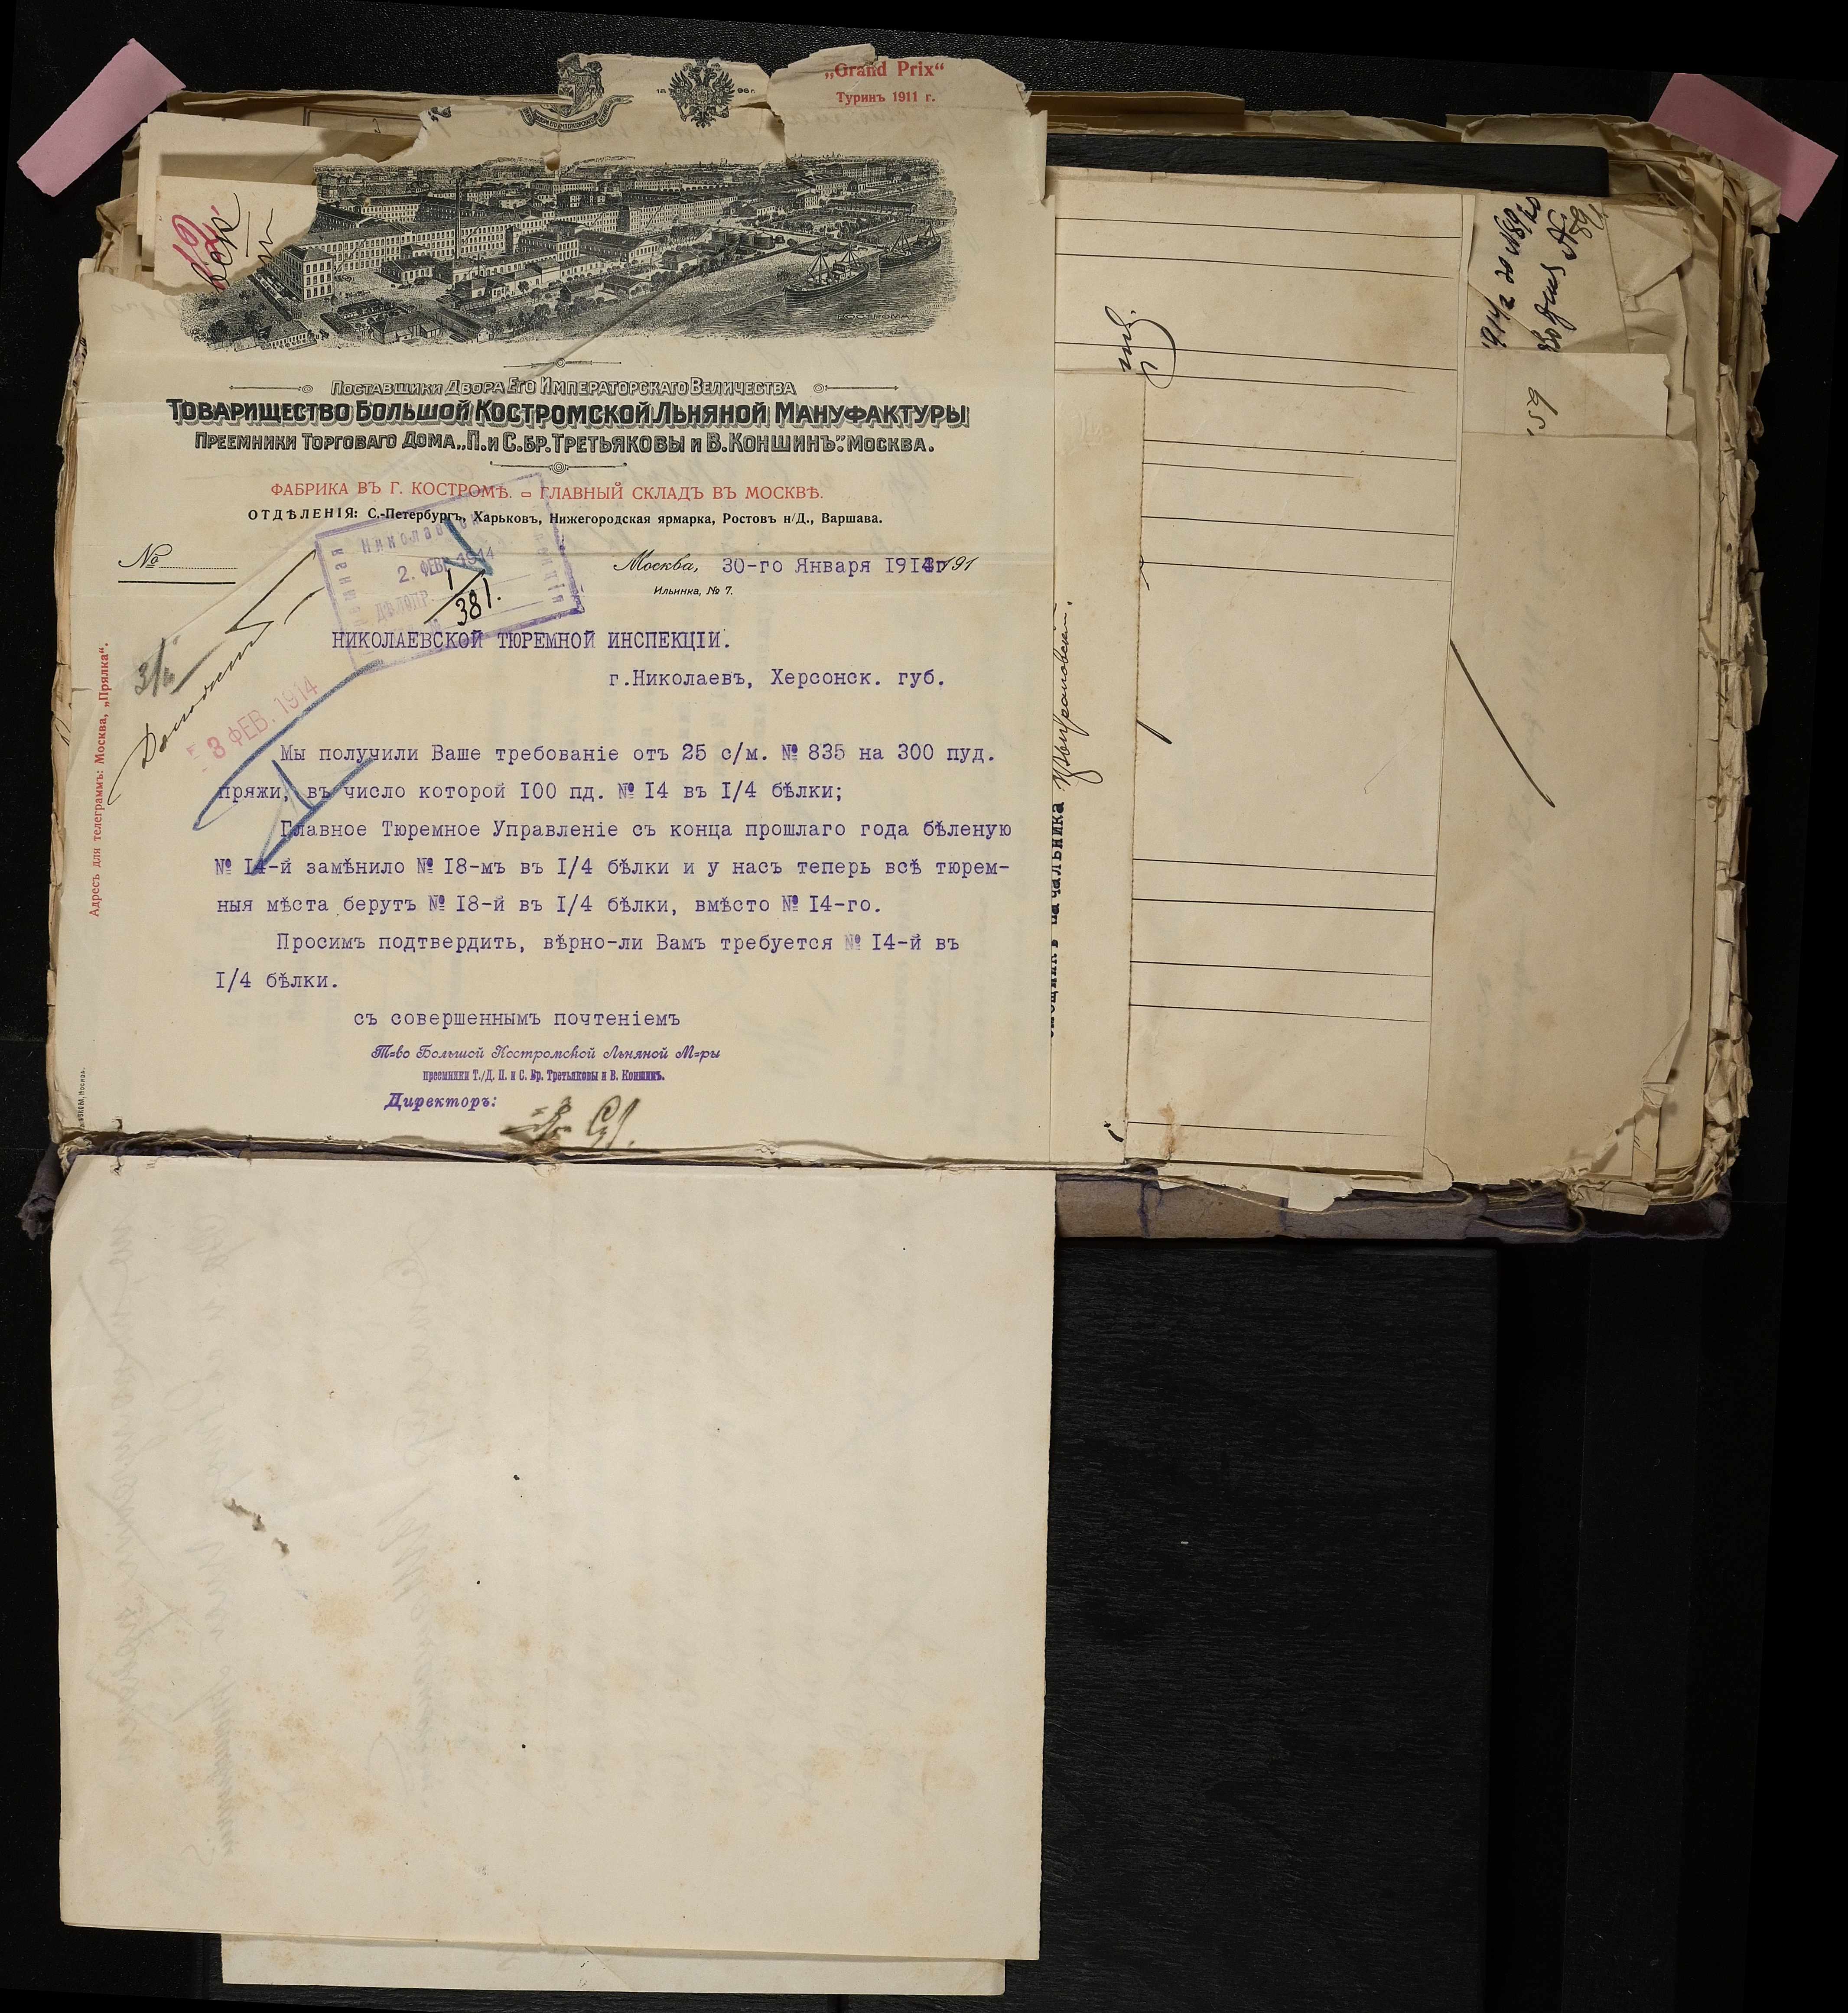 „Grand Prix“
Туринъ 1911 г.
КОСТРОМА
Поставщики Двора Его Императорскаго Величества
Товарищество Большой Костромской Льняной Мануфактуры
Преемники Торговаго Дома „П. и С. бр. Третьяковы и В. Коншинъ“. Москва.
ФАБРИКА ВЪ Г. КОСТРОМѢ. ▭ ГЛАВНЫЙ СКЛАДЪ ВЪ МОСКВѢ.
ОТДѢЛЕНІЯ: С.-Петербургъ, Харьковъ, Нижегородская ярмарка, Ростовъ н/Д., Варшава.
2. ФЕВ. 1914
ДѢЛОПР. 1
381.
№
Москва, 30-го Января 1914г 191
Ильинка, № 7.
НИКОЛАЕВСКОЙ ТЮРЕМНОЙ ИНСПЕКЦІИ.
г.Николаевъ, Херсонск. губ.
3/II
Доложить
3 ФЕВ. 1914
Адресъ для телеграммъ: Москва, „Прялка“.
Мы получили Ваше требованіе отъ 25 с/м. № 835 на 300 пуд.
пряжи, въ число которой I00 пд. № I4 въ I/4 бѣлки;
Главное Тюремное Управленіе съ конца прошлаго года бѣленую
№ I4-й замѣнило № I8-мъ въ I/4 бѣлки и у насъ теперь всѣ тюрем-
ныя мѣста берутъ № I8-й въ I/4 бѣлки, вмѣсто № I4-го.
Просимъ подтвердить, вѣрно-ли Вамъ требуется № I4-й въ
I/4 бѣлки.
съ совершеннымъ почтеніемъ
Т=во Большой Костромской Льняной М=ры
преемники Т./Д. П. и С. Бр. Третьяковы и В. Коншинъ.
Директоръ:
начальника
159